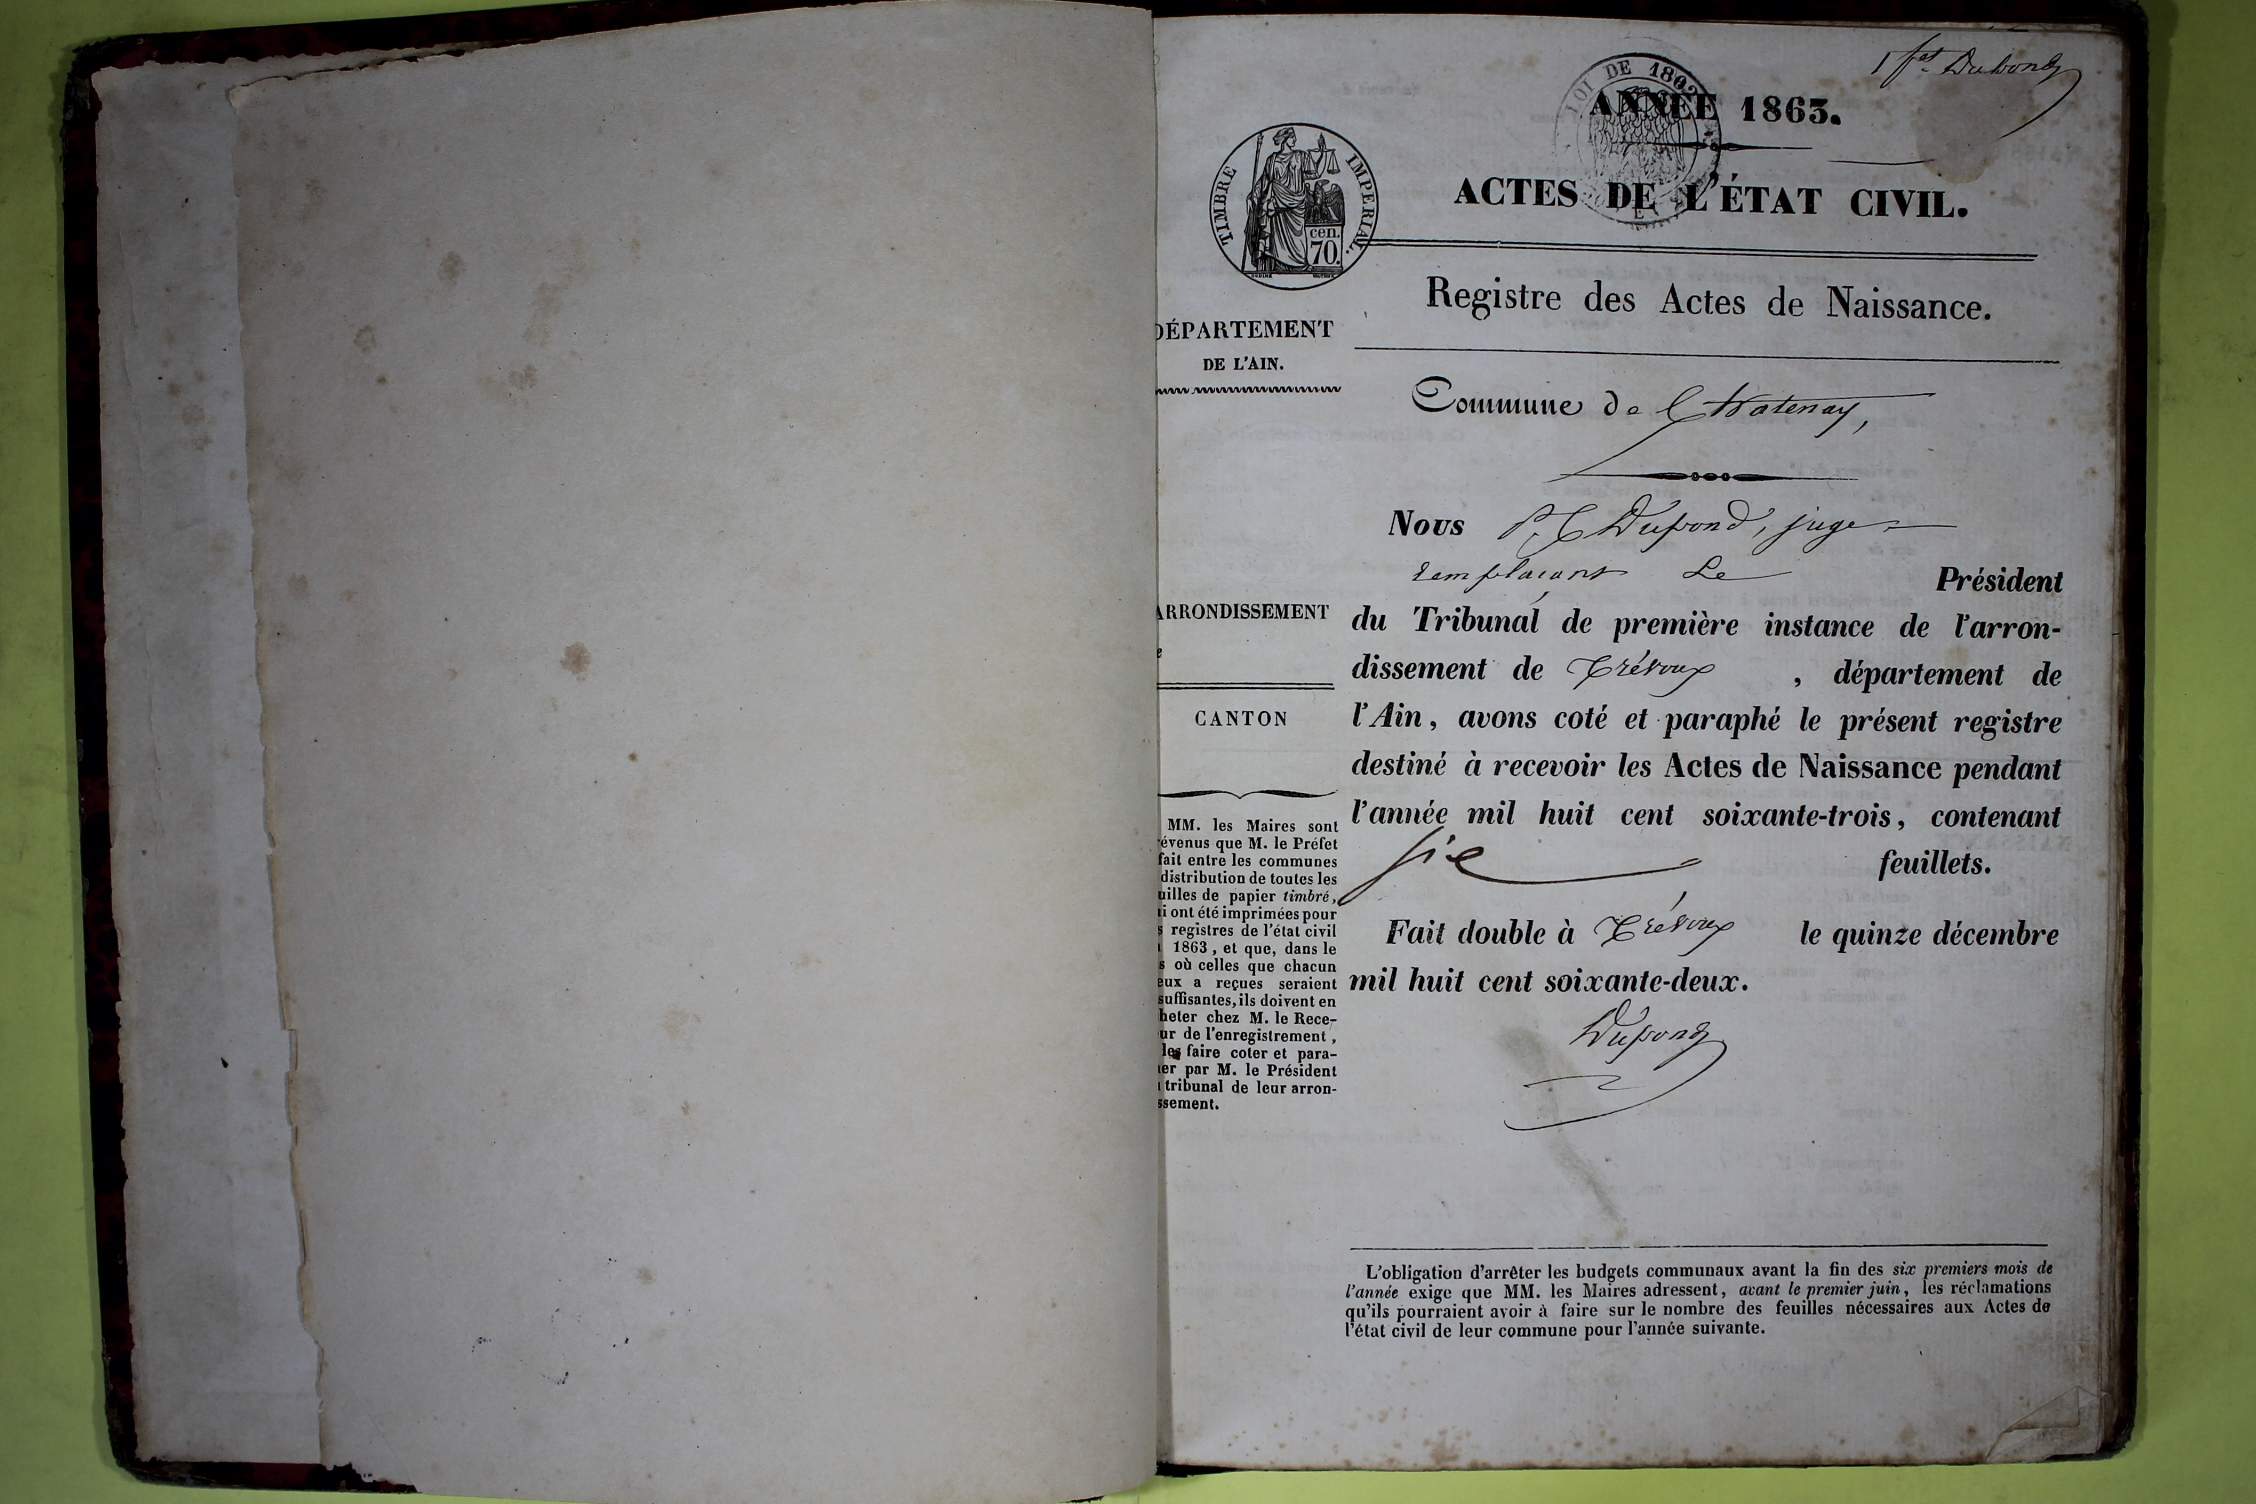 1 f.et Dupond
LOI DE 1862
ANNÉE 1863.
TIMBRE IMPERIAL.
cen.
70.
ACTES DE L'ÉTAT CIVIL.
Registre des Actes de Naissance.
DÉPARTEMENT
DE L'AIN.
Commune de Chatenay,
Nous P. C Dupond, juge
remplaçant Le Président
ARRONDISSEMENT
du Tribunal de première instance de l'arron-
dissement de Trévoux, département de
l'Ain, avons coté et paraphé le présent registre
destiné à recevoir les Actes de Naissance pendant
l'année mil huit cent soixante-trois, contenant
six feuillets.
Fait double à Trévoux le quinze décembre
mil huit cent soixante-deux.
Dupond
CANTON
MM. les Maires sont
évenus que M. le Préfet
fait entre les communes
distribution de toutes les
uilles de papier timbré,
i ont été imprimées pour
s registres de l'état civil
1863, et que, dans le
s où celles que chacun
eux a reçues seraient
suffisantes, ils doivent en
heter chez M. le Rece-
ur de l'enregistrement,
les faire coter et para-
er par M. le Président
tribunal de leur arron-
ssement.
L'obligation d'arrêter les budgets communaux avant la fin des six premiers mois de
l'année exige que MM. les Maires adressent, avant le premier juin, les réclamations
qu'ils pourraient avoir à faire sur le nombre des feuilles nécessaires aux Actes de
l'état civil de leur commune pour l'année suivante.